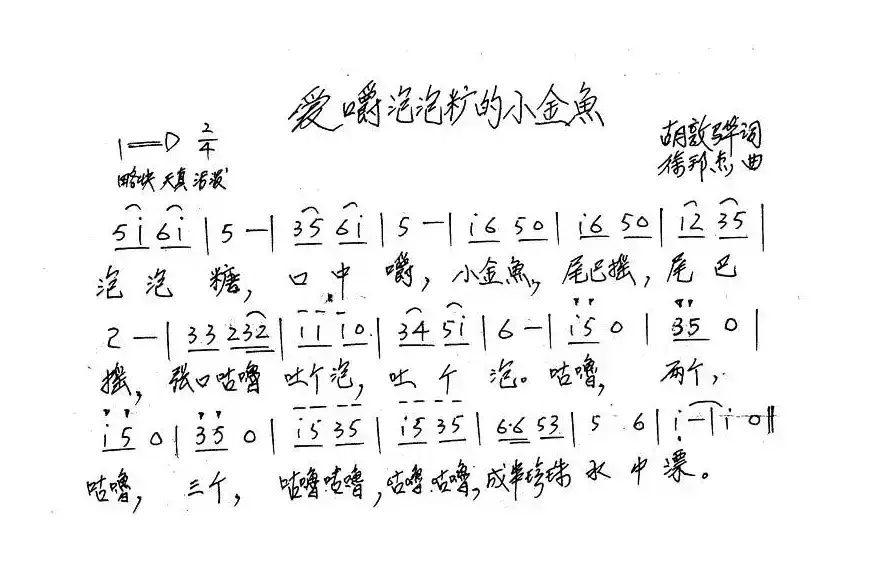 爱嚼泡泡糖的小金魚
1=D 2/4
胡敦骅词
略快 天真 活泼
徐邦杰曲
5i 6i | 5 — | 35 6i | 5 — | i6 50 | i6 50 | i2 35 |
泡泡糖，口中嚼，小金魚，尾巴摇，尾巴
2 — | 33 232 | ii i0 | 34 5i | 6 — | i5 0 | 35 0 |
摇，张口咕噜吐个泡，吐个泡。咕噜，两个，
i5 0 | 35 0 | i5 35 | i5 35 | 6·6 53 | 5 6 | i — | i 0 ||
咕噜，三个，咕噜咕噜，咕噜咕噜，成串珍珠水中漂。